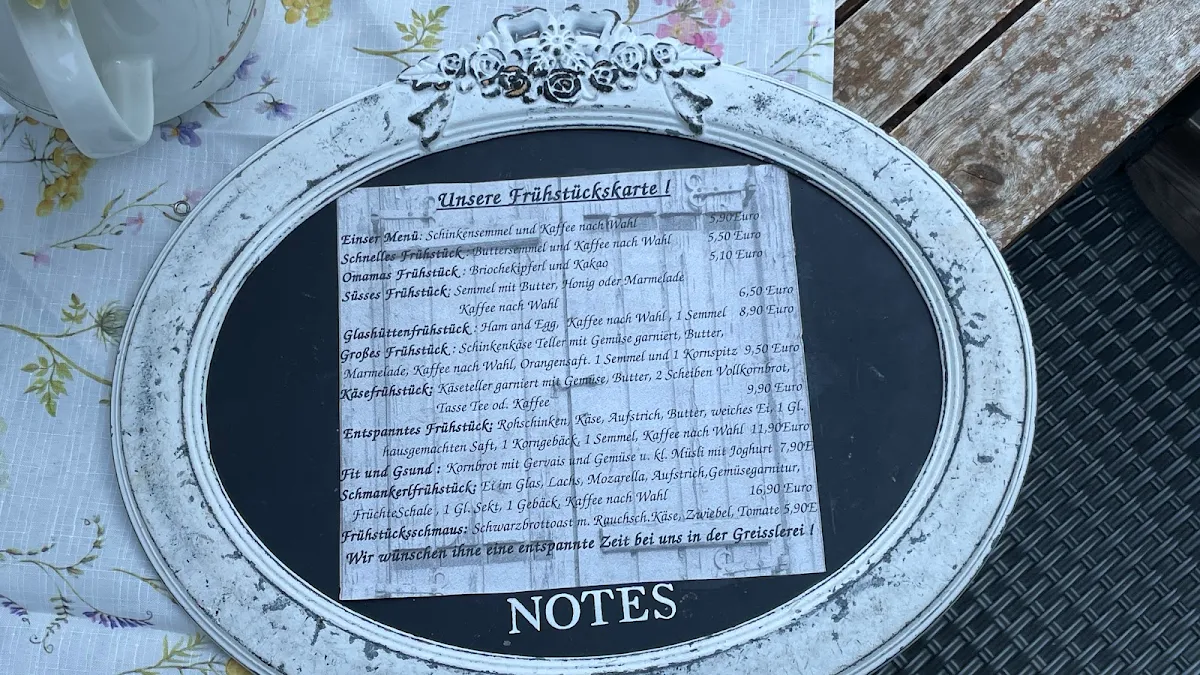 Unsere Frühstückskarte !
Einser Menü: Schinkensemmel und Kaffee nach Wahl 5,90Euro
Schnelles Frühstück : Buttersemmel und Kaffee nach Wahl 5,50 Euro
Omamas Frühstück : Briochekipferl und Kakao 5,10 Euro
Süsses Frühstück: Semmel mit Butter, Honig oder Marmelade
Kaffee nach Wahl 6,50 Euro
Glashüttenfrühstück : Ham and Egg, Kaffee nach Wahl , 1 Semmel 8,90 Euro
Großes Frühstück : Schinkenkäse Teller mit Gemüse garniert, Butter,
Marmelade, Kaffee nach Wahl, Orangensaft. 1 Semmel und 1 Kornspitz 9,50 Euro
Käsefrühstück: Käseteller garniert mit Gemüse, Butter, 2 Scheiben Vollkornbrot,
Tasse Tee od. Kaffee 9,90 Euro
Entspanntes Frühstück: Rohschinken, Käse, Aufstrich, Butter, weiches Ei, 1 Gl.
hausgemachten Saft, 1 Korngebäck, 1 Semmel, Kaffee nach Wahl 11,90Euro
Fit und Gsund : Kornbrot mit Gervais und Gemüse u. kl. Müsli mit Joghurt 7,90E
Schmankerlfrühstück: Ei im Glas, Lachs, Mozarella, Aufstrich,Gemüsegarnitur,
FrüchteSchale , 1 Gl. Sekt, 1 Gebäck, Kaffee nach Wahl 16,90 Euro
Frühstücksschmaus: Schwarzbrottoast m. Rauchsch.Käse, Zwiebel, Tomate 5,90E
Wir wünschen ihne eine entspannte Zeit bei uns in der Greisslerei !
NOTES